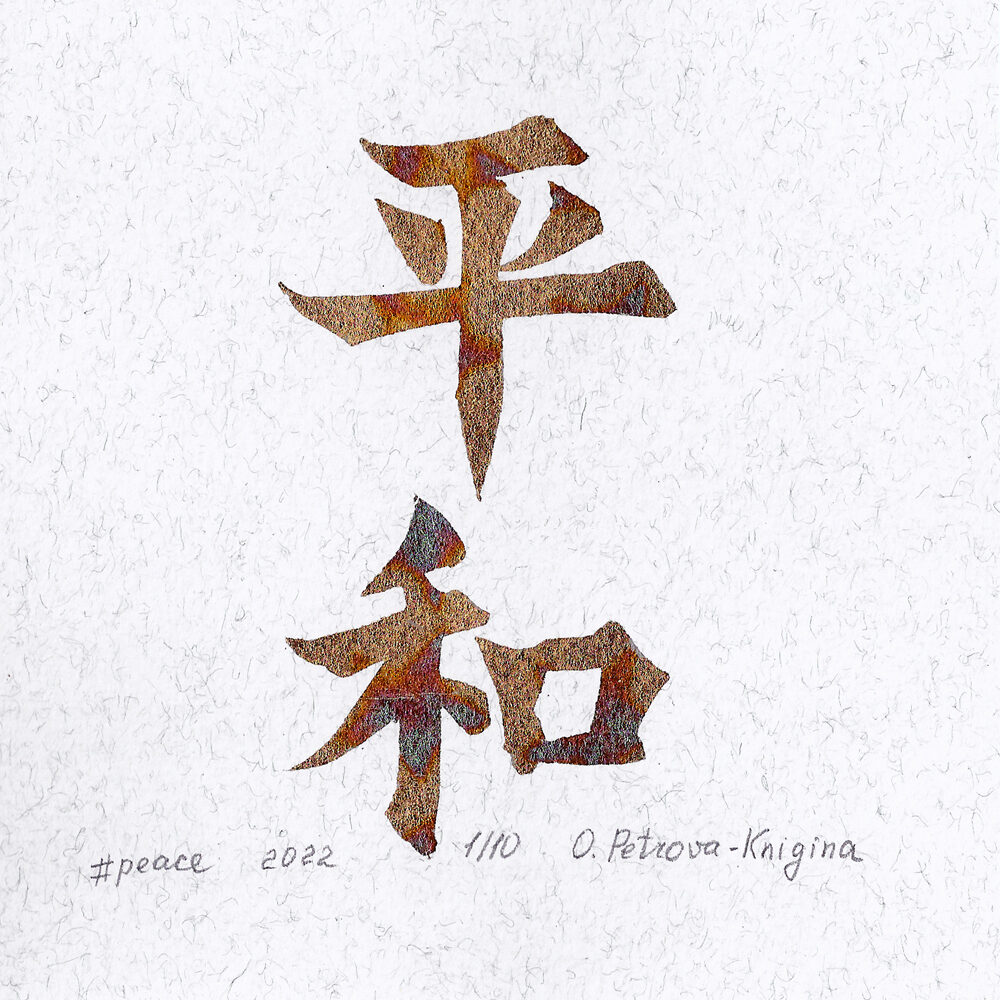 平
和
#peace 2022 1/10 O. Petrova-Knigina